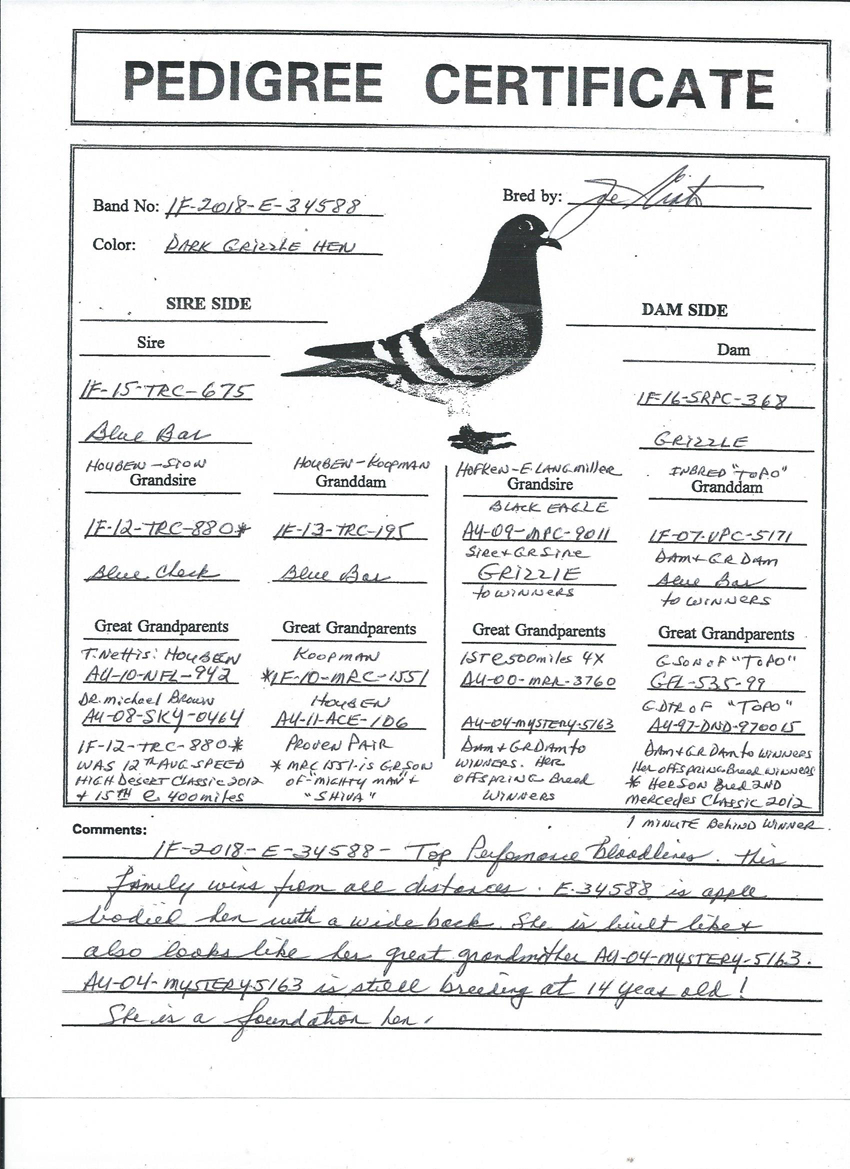 PEDIGREE CERTIFICATE
Band No: IF-2018-E-34588
Bred by: Joe
Color: DARK GRIZZLE HEN
SIRE SIDE
DAM SIDE
Sire
Dam
IF-15-TRC-675
IF-16-SRPC-368
Blue Bar
GRIZZLE
HOUBEN-SION
Grandsire
IF-12-TRC-880*
Blue Check
HOUBEN-KOOPMAN
Granddam
IF-13-TRC-195
Blue Bar
HOFKEN-E LANGMILLER
Grandsire
BLACK EAGLE
AU-09-MPC-9011
SIRE + GR SIRE
GRIZZLE
TO WINNERS
INBRED "TOPO"
Granddam
IF-07-VPC-5171
DAM + GR DAM
Blue Bar
TO WINNERS
Great Grandparents
T. NETTIS: HOUBEN
AU-10-NFL-942
DR. MICHAEL BROWN
AU-08-SKY-0464
IF-12-TRC-880*
WAS 12TH AVG SPEED
HIGH DESERT CLASSIC 2012
+ 15TH @ 400 MILES
Great Grandparents
KOOPMAN
*IF-10-MRC-1551
HOUBEN
AU-11-ACE-106
PROVEN PAIR
* MRC 1551 IS GRSON
OF "MIGHTY MAN" +
"SHIVA"
Great Grandparents
1ST @ 500 MILES 4X
AU-00-MRR-3760
AU-04-MYSTERY-5163
DAM + GR DAM TO
WINNERS. HER
OFFSPRING BREED
WINNERS
Great Grandparents
GSON OF "TOPO"
GFL-535-99
GDTR OF "TOPO"
AU-97-DND-970015
DAM + GR DAM TO WINNERS
HER OFFSPRING BREED WINNERS
* HER SON BRED 2ND
MERCEDES CLASSIC 2012
1 MINUTE BEHIND WINNER.
Comments:
IF-2018-E-34588 - Top Perfomance Bloodlines. This
family wins from all distances. E-34588 is apple
bodied hen with a wide back. She is built like +
also looks like her great grandmother AU-04-MYSTERY-5163.
AU-04-MYSTERY-5163 is still breeding at 14 years old!
She is a foundation hen.